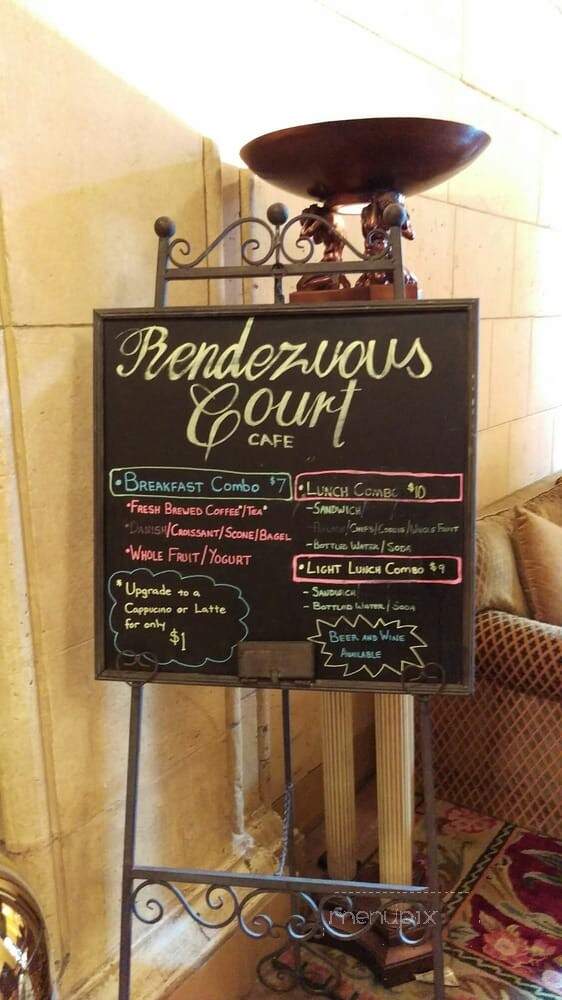 Rendezvous
Court
CAFE
•BREAKFAST COMBO $7
•FRESH BREWED COFFEE*/TEA*
•DANISH/CROISSANT/SCONE/BAGEL
•WHOLE FRUIT/YOGURT
*UPGRADE TO A
CAPPUCINO OR LATTE
FOR ONLY
$1
•LUNCH COMBO $10
-SANDWICH
/CHIPS/COOKIE/WHOLE FRUIT
-BOTTLED WATER/SODA
•LIGHT LUNCH COMBO $9
-SANDWICH
-BOTTLED WATER/SODA
BEER AND WINE
AVAILABLE
menupix